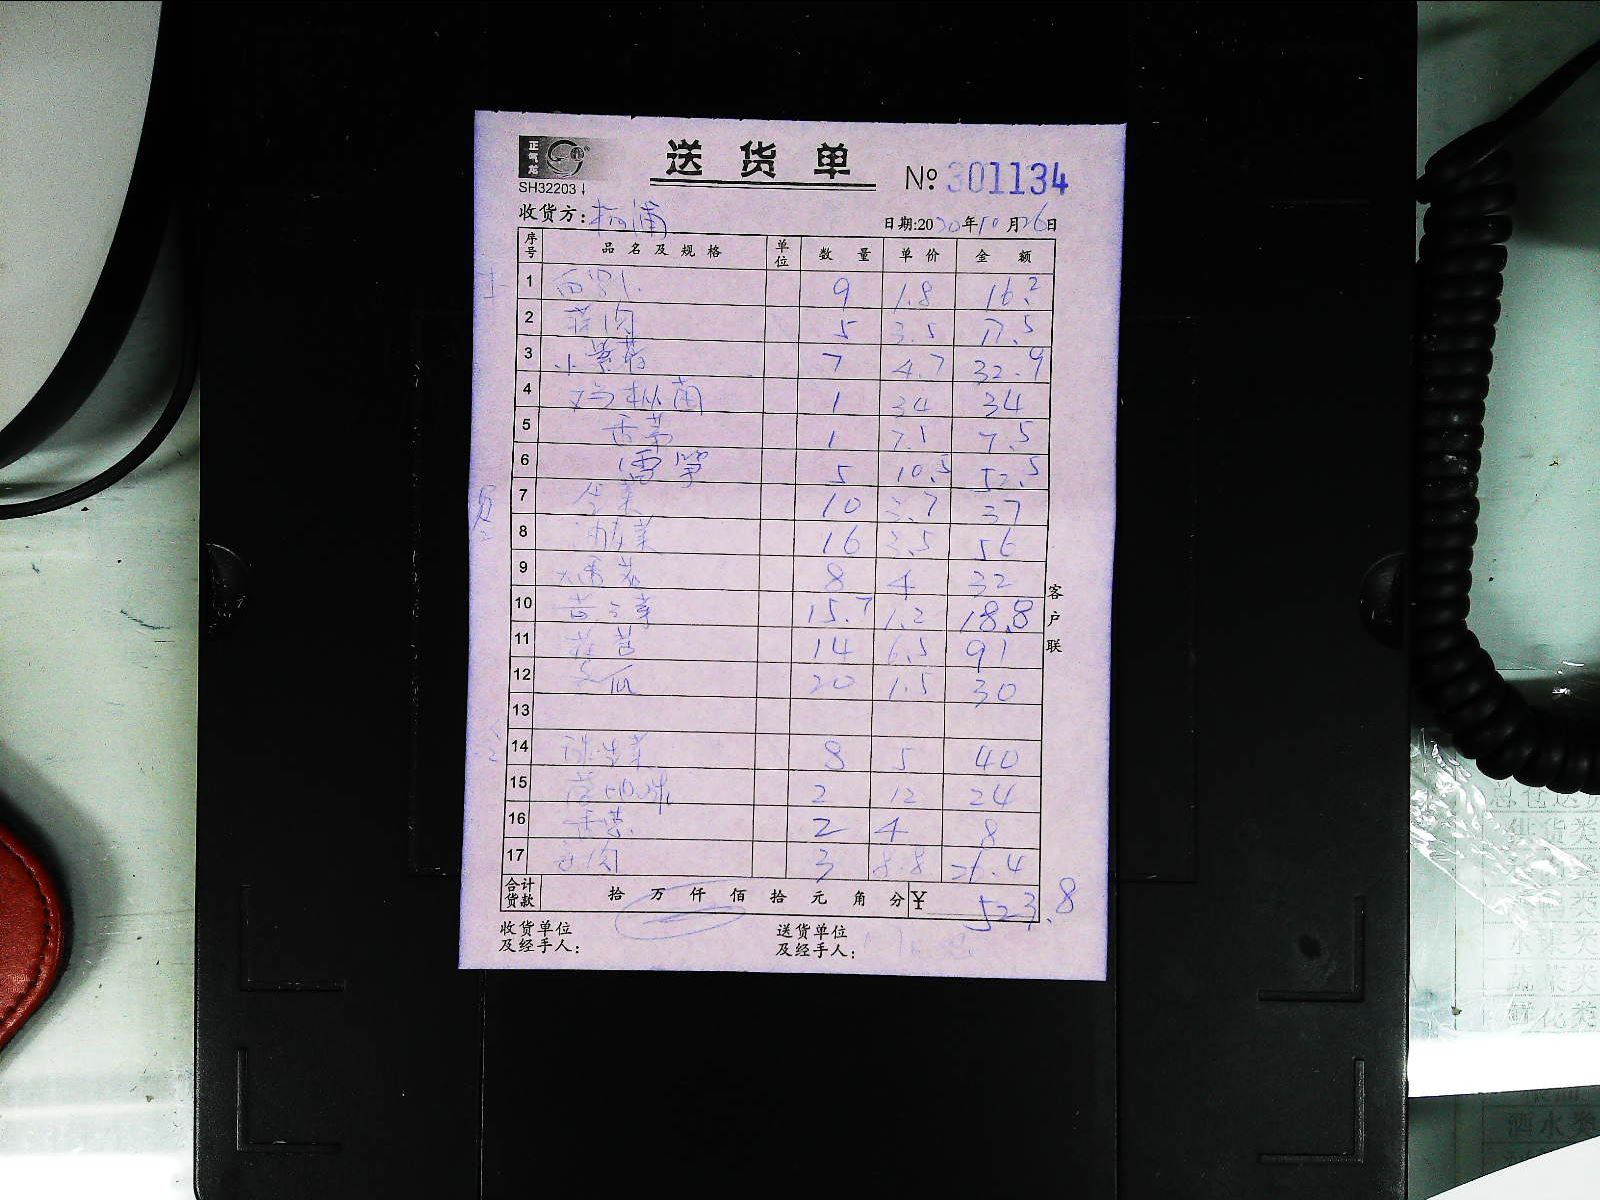 正气龙
送货单
SH32203
No 301134
收货方: 杨浦
日期:2020年10月26日
序号 品名及规格 单位 数量 单价 金额
1 9 1.8 16.2
2 5 3.5 17.5
3 7 4.7 32.9
4 鸡枞菌 1 34 34
5 香茅 1 7.5 7.5
6 雷笋 5 10.5 52.5
7 10 3.7 37
8 油麦菜 16 3.5 56
9 8 4 32
10 15.7 1.2 18.8
11 14 6.5 91
12 冬瓜 20 1.5 30
13
14 球生菜 8 5 40
15 2 12 24
16 香菜 2 4 8
17 3 8.8 26.4
合计货款 拾万仟佰拾元角分 ¥ 523.8
收货单位及经手人:
送货单位及经手人:
客户联
供货类
蔬菜类
鲜花类
酒水类